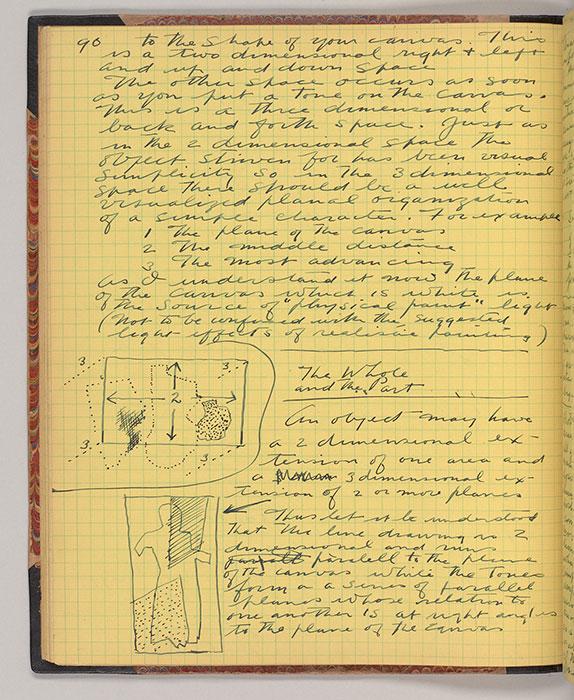 90 to the shape of your canvas. This
is a two dimensional right & left
and up and down space
The other space occurs as soon
as you put a tone on the canvas.
This is a three dimensional or
back and forth space. Just as
in the 2 dimensional space the
object striven for has been visual
simplicity so in the 3 dimensional
space there should be a well
visualized planal organization
of a simple character. For example
1 The plane of the canvas
2 The middle distance
3 The most advancing
As I understand it now the plane
of the canvas which is white is
the source of "physical paint" light
(not to be confused with the suggested
light effects of realistic painting)
3.
3.
2
3
3.
The Whole
and the Part
An object may have
a 2 dimensional ex-
tension of one area and
a 3 dimensional ex-
tension of 2 or more planes
Thus let it be understood
that the line drawing is 2
dimensional and runs
parallell to the plane
of the canvas while the tones
form a a series of parallel
planes whose relation to
one another is at right angles
to the plane of the canvas